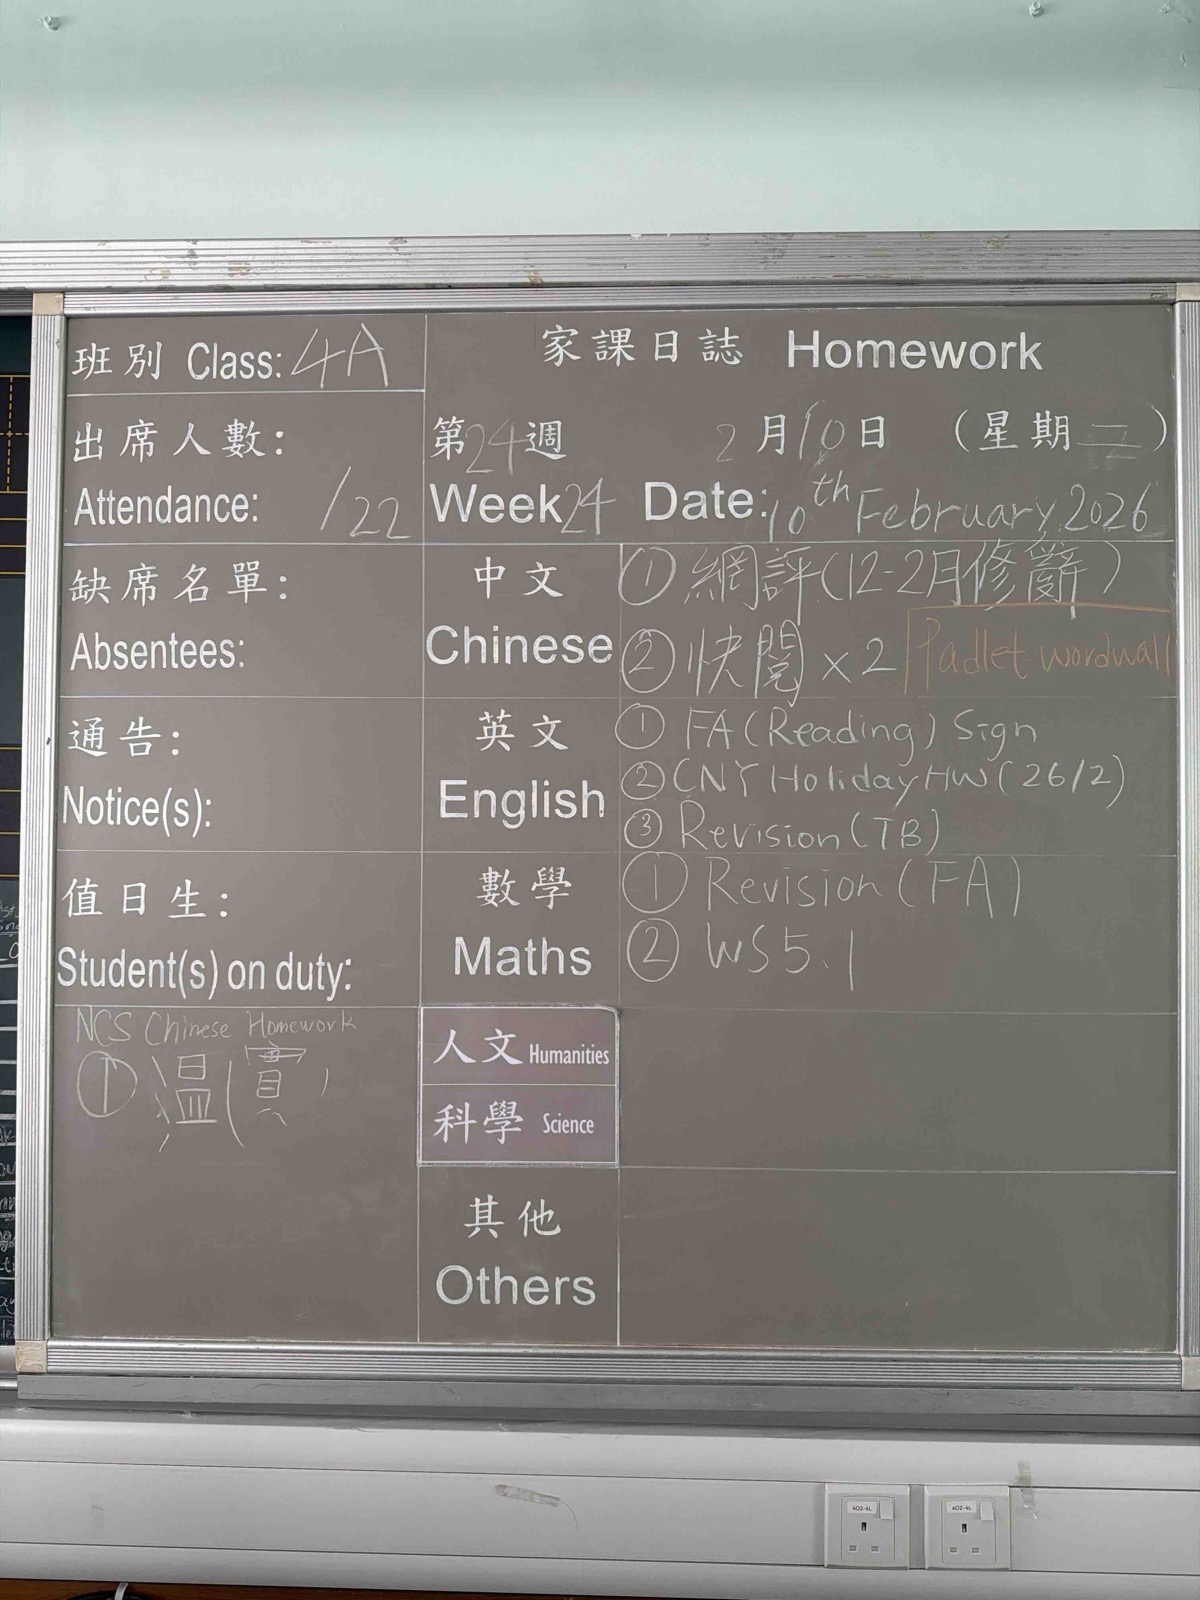 班別 Class: 4A
家課日誌 Homework
出席人數:
Attendance: /22
第24週 2月10日 (星期二)
Week 24 Date: 10th February, 2026
缺席名單:
Absentees:
中文
Chinese
① 網評(12-2月修辭)
② 快閱 x 2 Padlet wordwall
通告:
Notice(s):
英文
English
① FA (Reading) Sign
② CNY Holiday HW (26/2)
③ Revision (TB)
值日生:
Student(s) on duty:
數學
Maths
① Revision (FA)
② WS5.1
NCS Chinese Homework
① 溫(
人文 Humanities
科學 Science
其他
Others
402-4L
402-4L